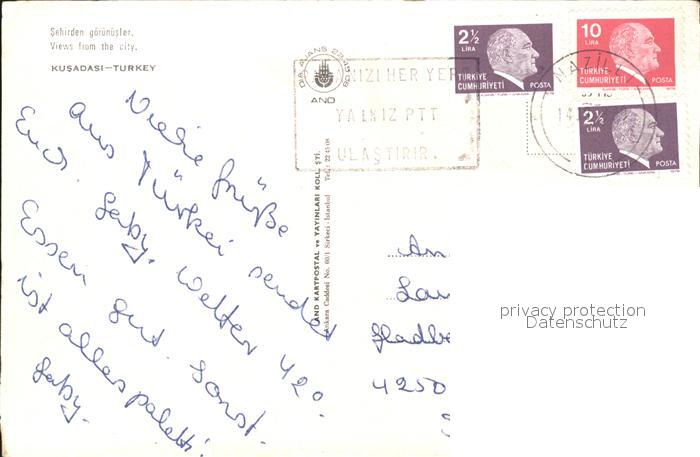 Şehirden görünüşler.
Views from the city.
KUŞADASI—TURKEY
DIA AJANS 22 49 09
AND
2½ LİRA
TÜRKİYE CUMHURİYETİ
POSTA
10 LİRA
TÜRKİYE CUMHURİYETİ
POSTA
2½ LİRA
TÜRKİYE CUMHURİYETİ
POSTA
NIZI HER YERE
YALNIZ PTT
ULAŞTIRIR.
NAZİL
14
Viele Grüße
aus Türkei sendet
Euch Gaby. Wetter 42°.
Essen gut. Sonst
ist alles paletti.
Gaby.
AND KARTPOSTAL ve YAYINLARI KOLL. ŞTİ.
Ankara Caddesi No. 60/1 Sirkeci - İstanbul Tel.: 22 45 08
An
Lau
Gladbe
4250
privacy protection
Datenschutz